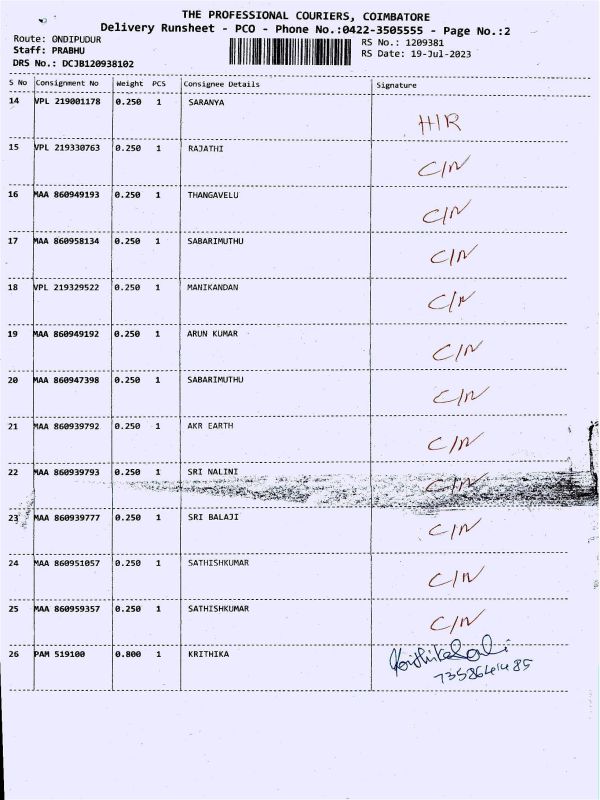 THE PROFESSIONAL COURIERS, COIMBATORE
Delivery Runsheet - PCO - Phone No.:0422-3505555 - Page No.:2
Route: ONDIPUDUR
RS No.: 1209381
Staff: PRABHU
RS Date: 19-Jul-2023
DRS No.: DCJB120938102
S No Consignment No Weight PCS Consignee Details Signature
14 VPL 219001178 0.250 1 SARANYA
H/R
15 VPL 219330763 0.250 1 RAJATHI
C/N
16 MAA 860949193 0.250 1 THANGAVELU
C/N
17 MAA 860958134 0.250 1 SABARIMUTHU
C/N
18 VPL 219329522 0.250 1 MANIKANDAN
C/N
19 MAA 860949192 0.250 1 ARUN KUMAR
C/N
20 MAA 860947398 0.250 1 SABARIMUTHU
C/N
21 MAA 860939792 0.250 1 AKR EARTH
C/N
22 MAA 860939793 0.250 1 SRI NALINI
C/N
23 MAA 860939777 0.250 1 SRI BALAJI
C/N
24 MAA 860951057 0.250 1 SATHISHKUMAR
C/N
25 MAA 860959357 0.250 1 SATHISHKUMAR
C/N
26 PAM 519100 0.800 1 KRITHIKA